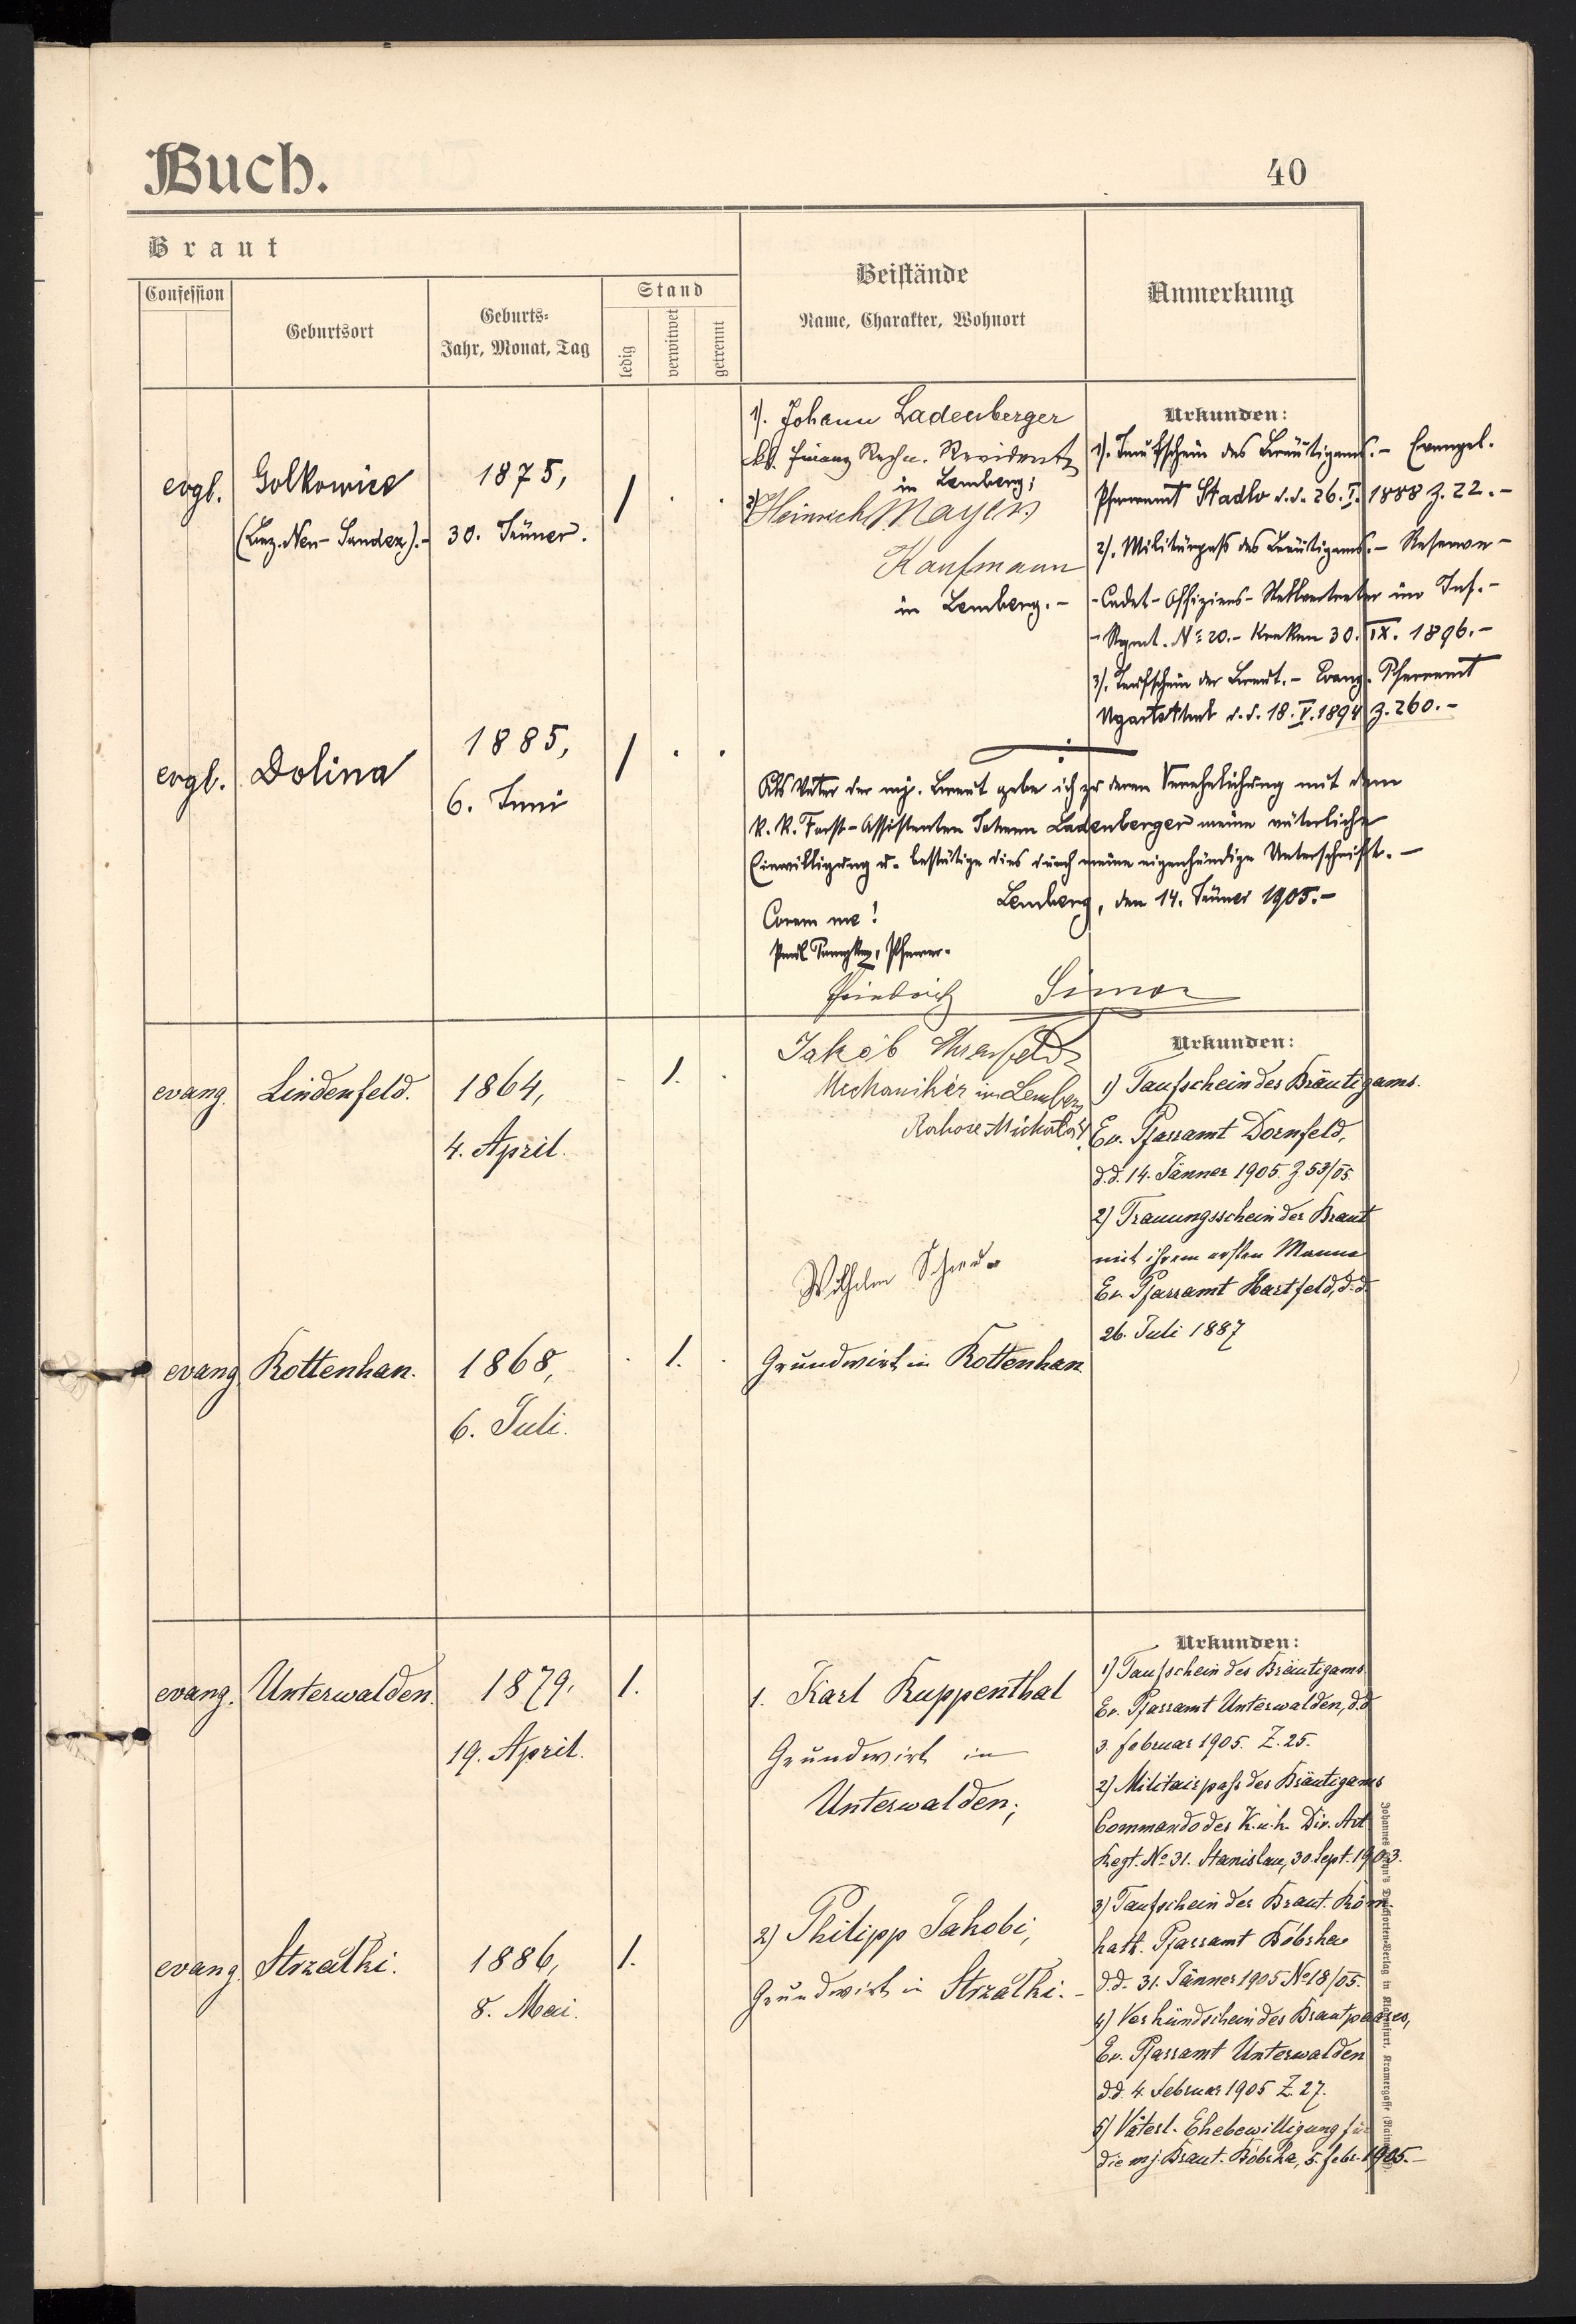 Buch.
40
Braut
Confession
Geburtsort
Geburts-
Jahr, Monat, Tag
Stand
ledig
verwitwet
getrennt
Beistände
Name, Charakter, Wohnort
Anmerkung
evgl.
Golkowice
(Bez. Neu-Sandez).-
1875,
30. Jänner.
1
1). Johann Ladenberger
kk. Finanz Rechn. Revident
in Lemberg;
2) Heinrich Mayer
Kaufmann
in Lemberg.-
Urkunden:
1). Taufschein des Bräutigams.- Evangel.
Pfarramt Stadlo d.d. 26. I. 1888 Z. 22.-
2). Militärpaß des Bräutigams.- Reserve-
-Cadet-Offiziers-Stellvertreter im Inf.-
-Rgmt. No 20.- Krakau 30. IX. 1896.-
3). Taufschein der Braut.- Evang. Pfarramt
Ugartsthal d.d. 18. V. 1894 Z. 260.-
evgl.
Dolina
1885,
6. Juni
1
Als Vater der mj. Braut gebe ich zu deren Verehelichung mit dem
k. k. Forst-Assistenten Johann Ladenberger meine väterliche
Einwilligung u. bestätige dies durch meine eigenhändige Unterschrift.-
Lemberg, den 14. Jänner 1905.-
Coram me!
Pfarrer.
Friedrich Simon
evang.
Lindenfeld.
1864,
4. April.
1.
Jakob Ehrenfeld
Mechaniker in Lemberg
Urkunden:
1) Taufschein des Bräutigams.
Ev. Pfarramt Dornfeld,
d.d. 14. Jänner 1905. Z 53/05.
2) Trauungsschein der Braut
mit ihrem ersten Manne
Ev. Pfarramt Hartfeld, d.d.
26. Juli 1887
Wilhelm
evang.
Rottenhan.
1868,
6. Juli.
1.
Grundwirt in Rottenhan.
evang.
Unterwalden.
1879.
19. April.
1.
1. Karl Ruppenthal
Grundwirt in
Unterwalden;
Urkunden:
1) Taufschein des Bräutigams.
Ev. Pfarramt Unterwalden, d.d.
3. Februar 1905. Z. 25.
2) Militairpaß des Bräutigams
Commando des K.u.k. Div. Art.
Regt. No 31. Stanislau, 30. Sept. 1903.
3) Taufschein der Braut. Röm.
kath. Pfarramt Bóbrka
d.d. 31. Jänner 1905 No 18/05.
4) Verkündschein des Brautpaares,
Ev. Pfarramt Unterwalden
d.d. 4. Februar 1905 Z. 27.
5) Väterl. Ehebewilligung für
die mj. Braut. Bóbrka, 5. Febr. 1905.-
evang.
Strzałki.
1886,
8. Mai.
1.
2) Philipp Jakobi,
Grundwirt in Strzałki.-